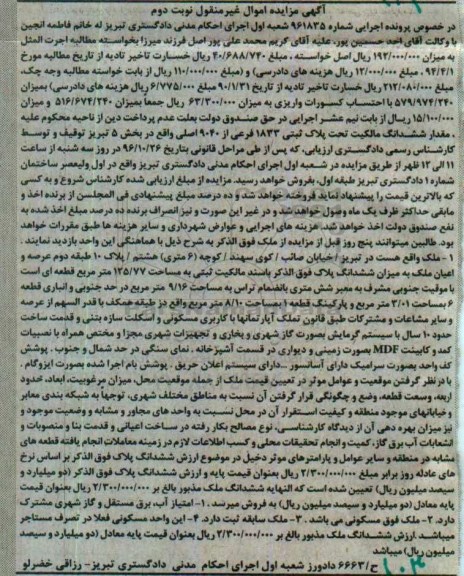 آگهی مزایده اموال غیرمنقول نوبت دوم
در خصوص پرونده اجرایی شماره ۹۶۱۸۳۵ شعبه اول اجرای احکام مدنی دادگستری تبریز له خانم فاطمه انجین
با وکالت آقای احد حسین پور، علیه آقای کریم محمد علی پور اصل فرزند میرزا بخواسته مطالبه اجرت المثل
به میزان ۱۹۲/۰۰۰/۰۰۰ ریال اصل خواسته ، مبلغ ۴۰/۶۸۸/۷۴۰ ریال خسارت تاخیر تادیه از تاریخ مطالبه مورخ
۹۴/۴/۱ ، مبلغ ۱۲/۰۰۰/۰۰۰ ریال هزینه های دادرسی) و (مبلغ ۱۱۰/۰۰۰/۰۰۰ ریال از بابت خواسته مطالبه وجه چک،
مبلغ ۲۱۲/۰۸۰/۰۰۰ ریال خسارت تاخیر تادیه از تاریخ ۹۰/۱/۳۱ مبلغ ۶/۷۷۵/۰۰۰ ریال هزینه های دادرسی) بمیزان
۵۷۹/۹۷۴/۲۴۰ با احتساب کسورات واریزی به میزان ۶۳/۳۰۰/۰۰۰ ریال جمعاً بمیزان ۵۱۶/۶۷۴/۲۴۰ و میزان
۱۵/۱۰۰/۰۰۰ ریال از بابت نیم عشر اجرایی در حق صندوق دولت بعلت عدم پرداخت دین از ناحیه محکوم علیه
، مقدار ششدانگ مالکیت تحت پلاک ثبتی ۱۸۳۳ فرعی از ۹۰۴۰ اصلی واقع در بخش ۵ تبریز توقیف و توسط
کارشناس رسمی دادگستری ارزیابی، که پس از طی مراحل قانونی بتاریخ ۹۶/۱۰/۲۶ در روز سه شنبه از ساعت
۱۱ الی ۱۲ ظهر از طریق مزایده در شعبه اول اجرای احکام مدنی دادگستری تبریز واقع در اول ولیعصر ساختمان
شماره ۱ دادگستری تبریز طبقه اول، بفروش خواهد رسید. مزایده از مبلغ ارزیابی شده کارشناس شروع و به کسی
که بالاترین قیمت را پیشنهاد نماید فروخته خواهد شد و ده درصد مبلغ پیشنهادی فی المجلس از برنده اخذ و
مابقی حداکثر ظرف یک ماه وصول خواهد شد و در غیر این صورت و نیز انصراف برنده ده درصد مبلغ اخذ شده به
نفع صندوق دولت اخذ خواهد شد. هزینه های اجرایی و عوارض شهرداری و سایر هزینه ها طبق مقررات خواهد
بود. طالبین میتوانند پنج روز قبل از مزایده از ملک فوق الذکر به شرح ذیل با هماهنگی این واحد بازدید نمایند .
۱- ملک واقع هست در تبریز / خیابان صائب / کوی سهند / کوچه (۶ متری) هشتم / پلاک ۱۰ طبقه دوم عرصه و
اعیان ملک به میزان ششدانگ پلاک فوق الذکر باستند مالکیت ثبتی به مساحت ۱۲۵/۷۷ متر مربع قطعه ای است
با موقعیت جنوبی مشرف به معبر شش متری بالنضمام تراس به مساحت ۹/۱۶ متر مربع در حد جنوبی و انباری قطعه
۶ بمساحت ۳/۰۱ متر مربع و پارکینگ قطعه ۱ بمساحت ۸/۱۰ متر مربع واقع در طبقه همکف با قدر السهم از عرصه
و سایر مشاعات و مشترکات طبق قانون تملک آپارتمانها با کاربری مسکونی و اسکلت سازه بتنی و قدمت ساخت
حدود ۱۰ سال با سیستم گرمایش بصورت گاز شهری و بخاری و تجهیزات شهری مجزا و مختص همراه با نصبیات
کمد و کابینت MDF بصورت زمینی و دیواری در قسمت آشپزخانه . نمای سنگی در حد شمال و جنوب . پوشش
کف واحد بصورت سرامیک دارای آسانسور ...دارای سیستم اعلان حریق . پوشش بام اجرا شده بصورت ایزوگام .
با در نظر گرفتن موقعیت و عوامل موثر در تعیین قیمت ملک از جمله موقعیت محل، میزان مرغوبیت، ابعاد، حدود
اربعه، وسعت قطعه، وضع و چگونگی قرار گرفتن آن نسبت به مناطق مختلف شهری، توجهاً به شبکه بندی معابر
و خیابانهای موجود منطقه و کیفیت استقرار آن در محل نسبت به واحد های مجاور و مشابه و وضعیت موجود و
نیز میزان بهره دهی آن از دیدگاه کارشناسی، نوع مصالح بکار رفته در ساخت اعیانی و قدمت بنا و منصوبات و
انشعابات آب برق گاز، کمیت و انجام تحقیقات محلی و کسب اطلاعات لازم در زمینه معاملات انجام یافته قطعه های
مشابه در منطقه و سایر عوامل و پارامترهای موثر دخیل در موضوع ارزش ششدانگ پلاک فوق الذکر بر اساس نرخ
های عادله روز برابر مبلغ ۲/۳۰۰/۰۰۰/۰۰۰ ریال بعنوان قیمت پایه و ارزش ششدانگ پلاک فوق الذکر (دو میلیارد و
سیصد میلیون ریال) تعیین شده است که النهایه ششدانگ ملک مذبور بالغ بر ۲/۳۰۰/۰۰۰/۰۰۰ ریال بعنوان قیمت
پایه معادل (دو میلیارد و سیصد میلیون ریال) به فروش میرسد . ۱- امتیاز آب، برق مستقل و گاز شهری مشترک
دارد. ۲- ملک فوق مسکونی می باشد . ۳- ملک سابقه ثبت دارد. ۴- این واحد مسکونی فعلا در تصرف مستاجر
میباشد .ارزش ششدانگ ملک مذبور بالغ بر ۲/۳۰۰/۰۰۰/۰۰۰ ریال بعنوان قیمت پایه معادل (دو میلیارد و سیصد
میلیون ریال) میباشد
ح/۶۶۶۳ دادورز شعبه اول اجرای احکام مدنی دادگستری تبریز- رزاقی خضرلو